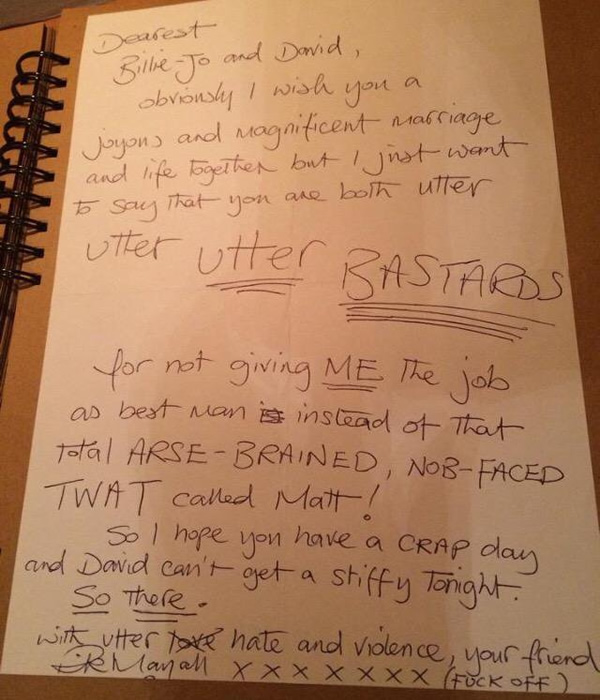 Dearest
Billie-Jo and David,
obviously I wish you a
joyous and magnificent marriage
and life together but I just want
to say that you are both utter
utter utter BASTARDS
for not giving ME the job
as best man is instead of that
total ARSE-BRAINED, NOB-FACED
TWAT called Matt!
So I hope you have a CRAP day
and David can't get a stiffy tonight.
So there.
with utter love hate and violence, your friend
Rik Mayall X X X X X X X (FUCK OFF)